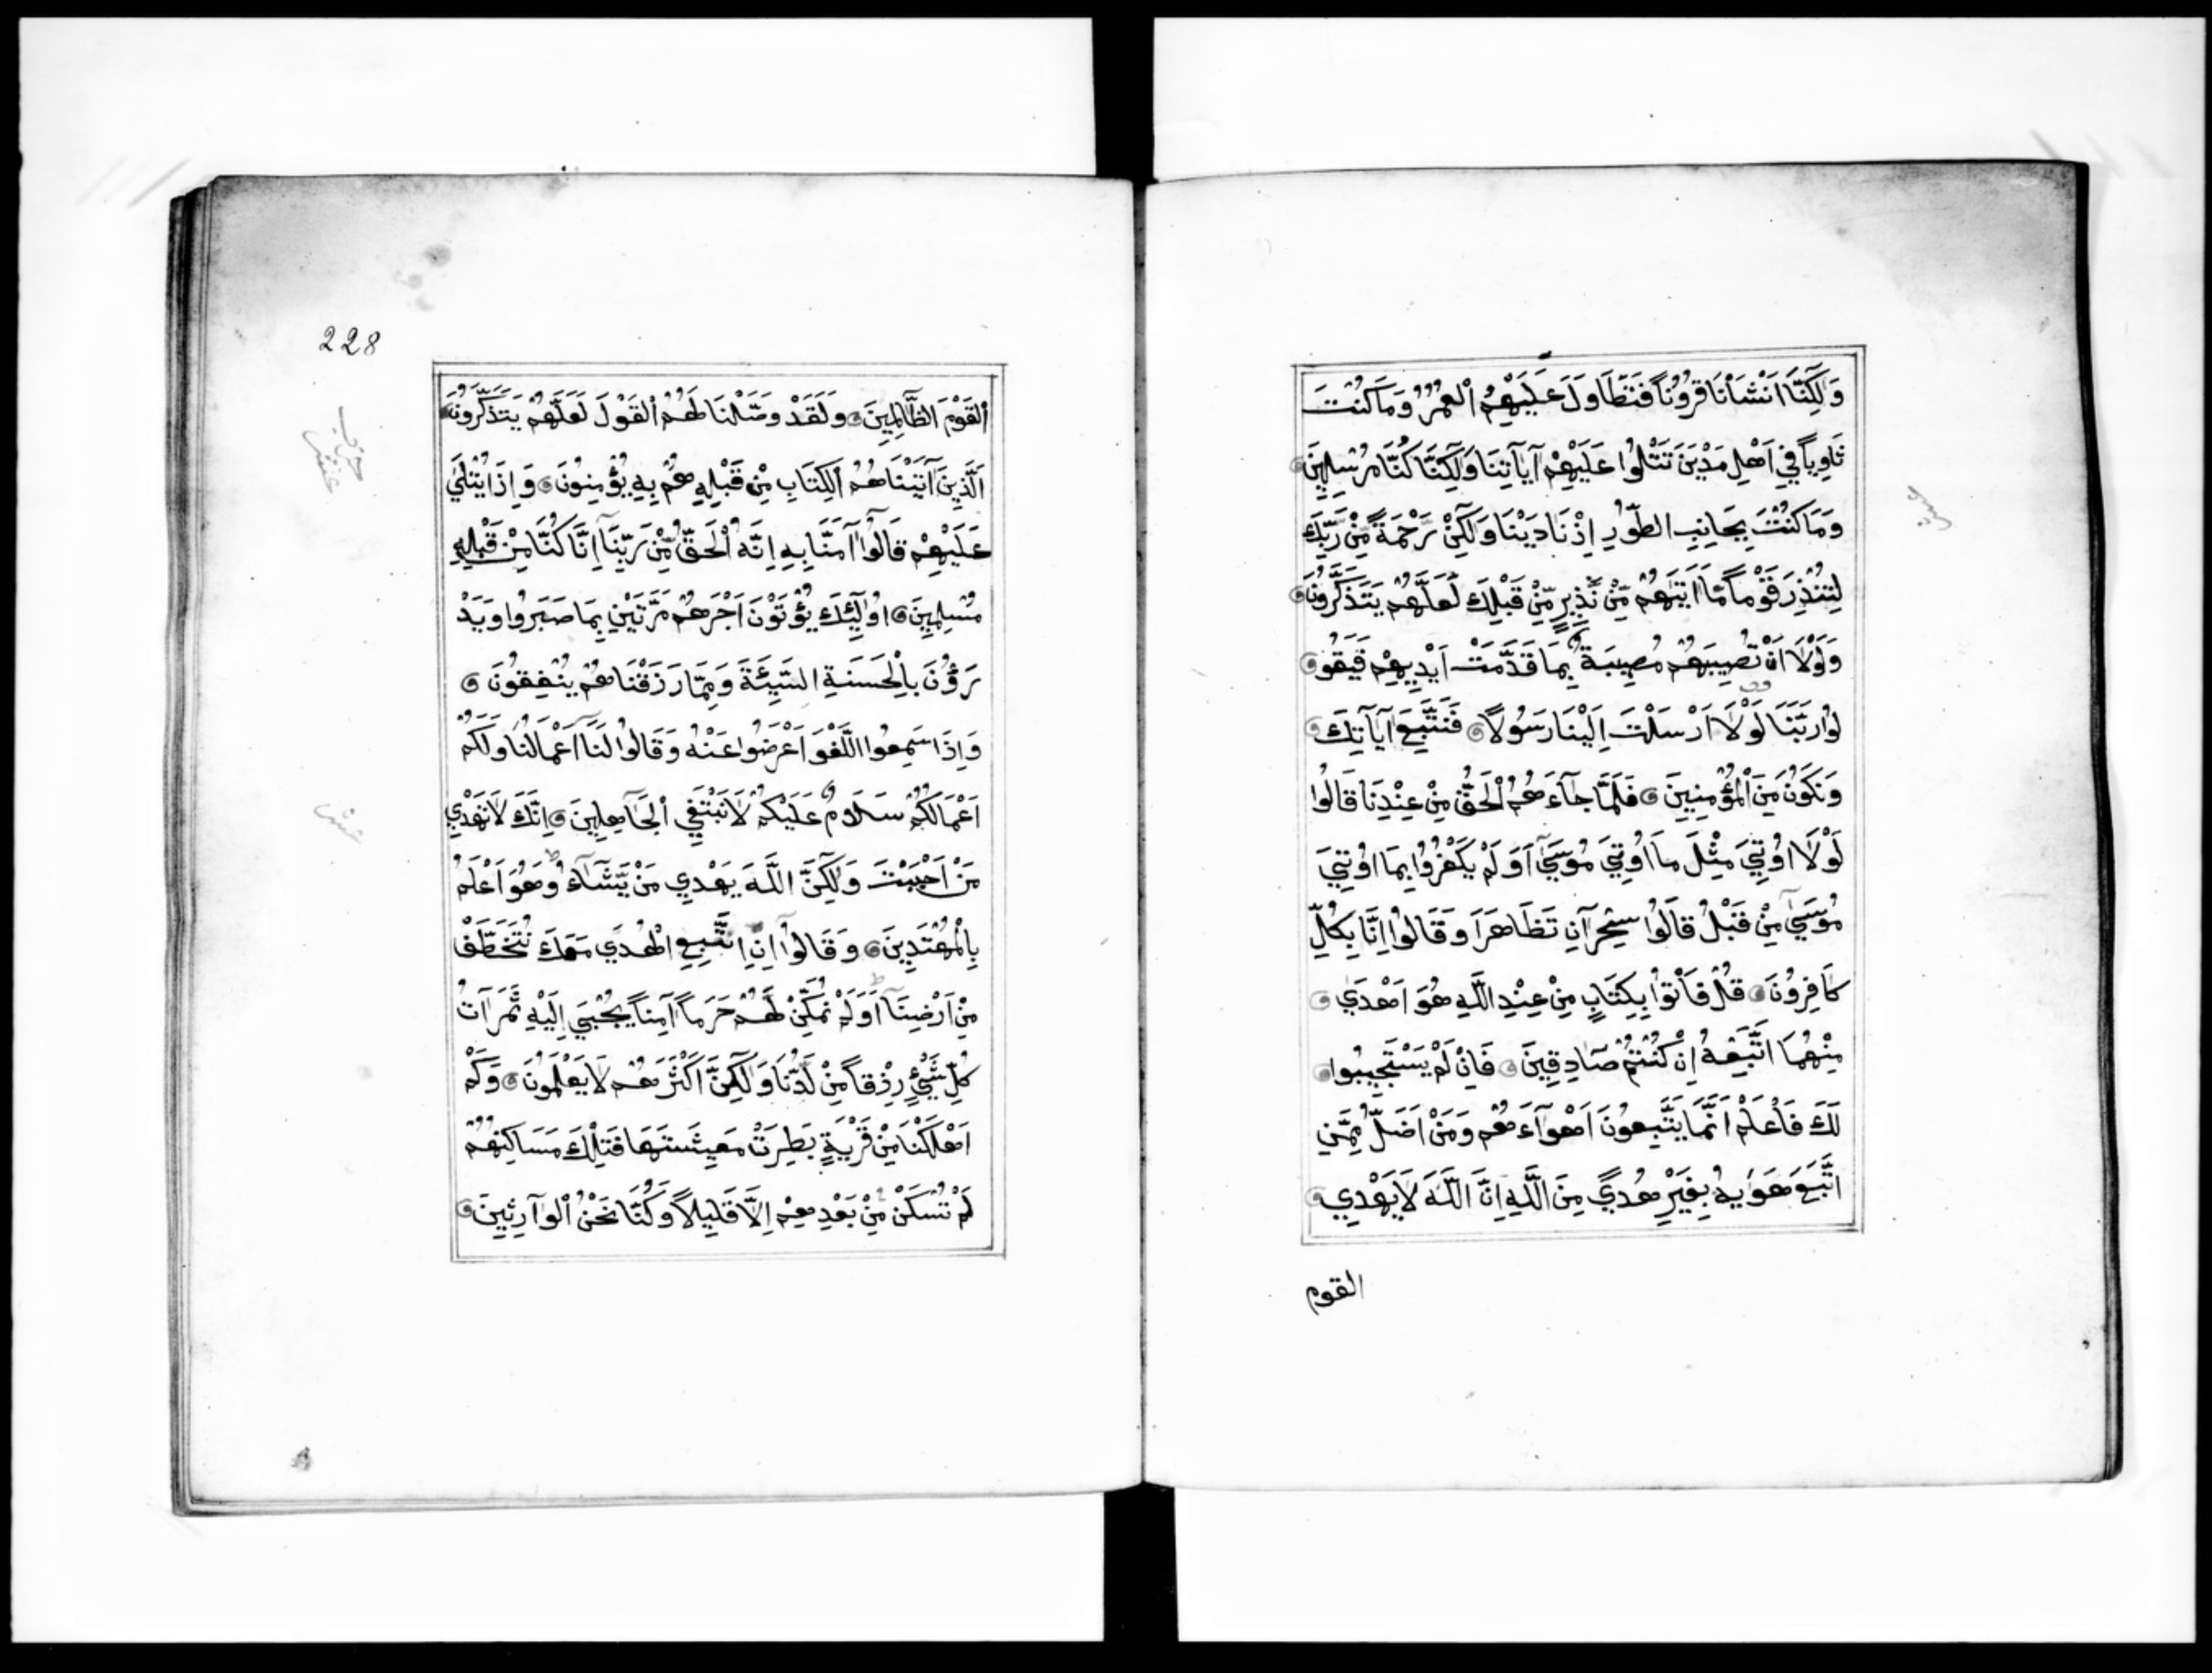 وَلَٰكِنَّا اَنْشَأْنَا قُرُونًا فَتَطَاوَلَ عَلَيْهِمُ الْعُمُرُ وَمَا كُنْتَ
ثَاوِيًا فِي اَهْلِ مَدْيَنَ تَتْلُوا عَلَيْهِمْ آيَاتِنَا وَلَٰكِنَّا كُنَّا مُرْسِلِينَ
وَمَا كُنْتَ بِجَانِبِ الطُّورِ اِذْ نَادَيْنَا وَلَٰكِنْ رَحْمَةً مِنْ رَبِّكَ
لِتُنْذِرَ قَوْمًا مَّا اَتَيٰهُمْ مِّنْ نَّذِيرٍ مِّنْ قَبْلِكَ لَعَلَّهُمْ يَتَذَكَّرُونَ
وَلَوْلَا اَنْ تُصِيبَهُمْ مُصِيبَةٌ بِمَا قَدَّمَتْ اَيْدِيهِمْ فَيَقُو
لُوا رَبَّنَا لَوْلَا اَرْسَلْتَ اِلَيْنَا رَسُولًا فَنَتَّبِعَ آيَاتِكَ
وَنَكُونَ مِنَ الْمُؤْمِنِينَ فَلَمَّا جَآءَهُمُ الْحَقُّ مِنْ عِنْدِنَا قَالُوا
لَوْلَا اُوتِيَ مِثْلَ مَا اُوتِيَ مُوسَىٰ اَوَلَمْ يَكْفُرُوا بِمَا اُوتِيَ
مُوسَىٰ مِنْ قَبْلُ قَالُوا سِحْرَانِ تَظَاهَرَا وَقَالُوا اِنَّا بِكُلٍّ
كَافِرُونَ قُلْ فَأْتُوا بِكِتَابٍ مِنْ عِنْدِ اللَّهِ هُوَ اَهْدَىٰ
مِنْهُمَا اَتَّبِعْهُ اِنْ كُنْتُمْ صَادِقِينَ فَاِنْ لَمْ يَسْتَجِيبُوا
لَكَ فَاعْلَمْ اَنَّمَا يَتَّبِعُونَ اَهْوَآءَهُمْ وَمَنْ اَضَلُّ مِمَّنِ
اتَّبَعَ هَوٰيهُ بِغَيْرِ هُدًى مِنَ اللَّهِ اِنَّ اللَّهَ لَا يَهْدِي
القوم
228
الْقَوْمَ الظَّالِمِينَ وَلَقَدْ وَصَّلْنَا لَهُمُ الْقَوْلَ لَعَلَّهُمْ يَتَذَكَّرُونَ
اَلَّذِينَ آتَيْنَاهُمُ الْكِتَابَ مِنْ قَبْلِهِ هُمْ بِهِ يُؤْمِنُونَ وَاِذَا يُتْلَىٰ
عَلَيْهِمْ قَالُوا آمَنَّا بِهِ اِنَّهُ الْحَقُّ مِنْ رَبِّنَا اِنَّا كُنَّا مِنْ قَبْلِهِ
مُسْلِمِينَ اُولٰٓئِكَ يُؤْتَوْنَ اَجْرَهُمْ مَرَّتَيْنِ بِمَا صَبَرُوا وَيَدْ
رَؤُنَ بِالْحَسَنَةِ السَّيِّئَةَ وَمِمَّا رَزَقْنَاهُمْ يُنْفِقُونَ
وَاِذَا سَمِعُوا اللَّغْوَ اَعْرَضُوا عَنْهُ وَقَالُوا لَنَا اَعْمَالُنَا وَلَكُمْ
اَعْمَالُكُمْ سَلَامٌ عَلَيْكُمْ لَا نَبْتَغِي الْجَاهِلِينَ اِنَّكَ لَا تَهْدِي
مَنْ اَحْبَبْتَ وَلَٰكِنَّ اللَّهَ يَهْدِي مَنْ يَّشَآءُ وَهُوَ اَعْلَمُ
بِالْمُهْتَدِينَ وَقَالُوا اِنْ نَتَّبِعِ الْهُدَىٰ مَعَكَ نُتَخَطَّفْ
مِنْ اَرْضِنَا اَوَلَمْ نُمَكِّنْ لَهُمْ حَرَمًا آمِنًا يُجْبَىٰ اِلَيْهِ ثَمَرَاتُ
كُلِّ شَيْءٍ رِزْقًا مِنْ لَدُنَّا وَلَٰكِنَّ اَكْثَرَهُمْ لَا يَعْلَمُونَ وَكَمْ
اَهْلَكْنَا مِنْ قَرْيَةٍ بَطِرَتْ مَعِيشَتَهَا فَتِلْكَ مَسَاكِنُهُمْ
لَمْ تُسْكَنْ مِنْ بَعْدِهِمْ اِلَّا قَلِيلًا وَكُنَّا نَحْنُ الْوَارِثِينَ